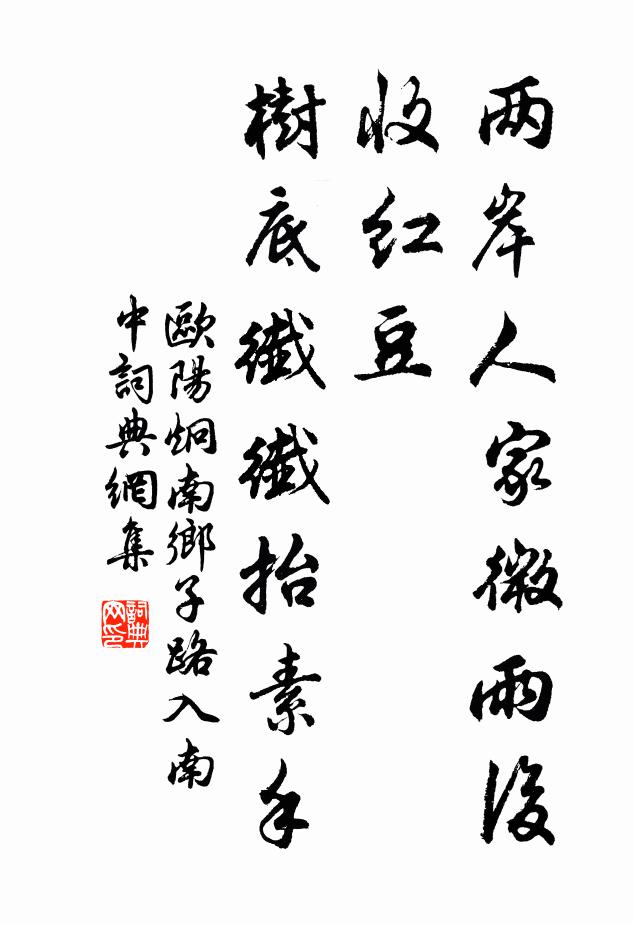 两岸人家微雨後
收紅豆
樹底纖纖抬素手
歐陽炯南鄉子路入南
中詞典網集
詞典网印